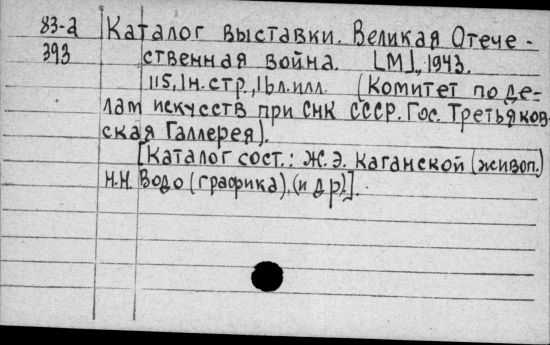 83-2 Каталог выставки. Великая Отече-
393 ственная война. [М], 1943.
115, 1н.стр., 16л.илл. (Комитет по де-
лам искусств при СНК СССР. Гос. Третьяков-
ская Галлерея).
[Каталог сост.: Ж.Э. Каганской (живоп.)
Н.Н. Водо (графика), (и др.)].